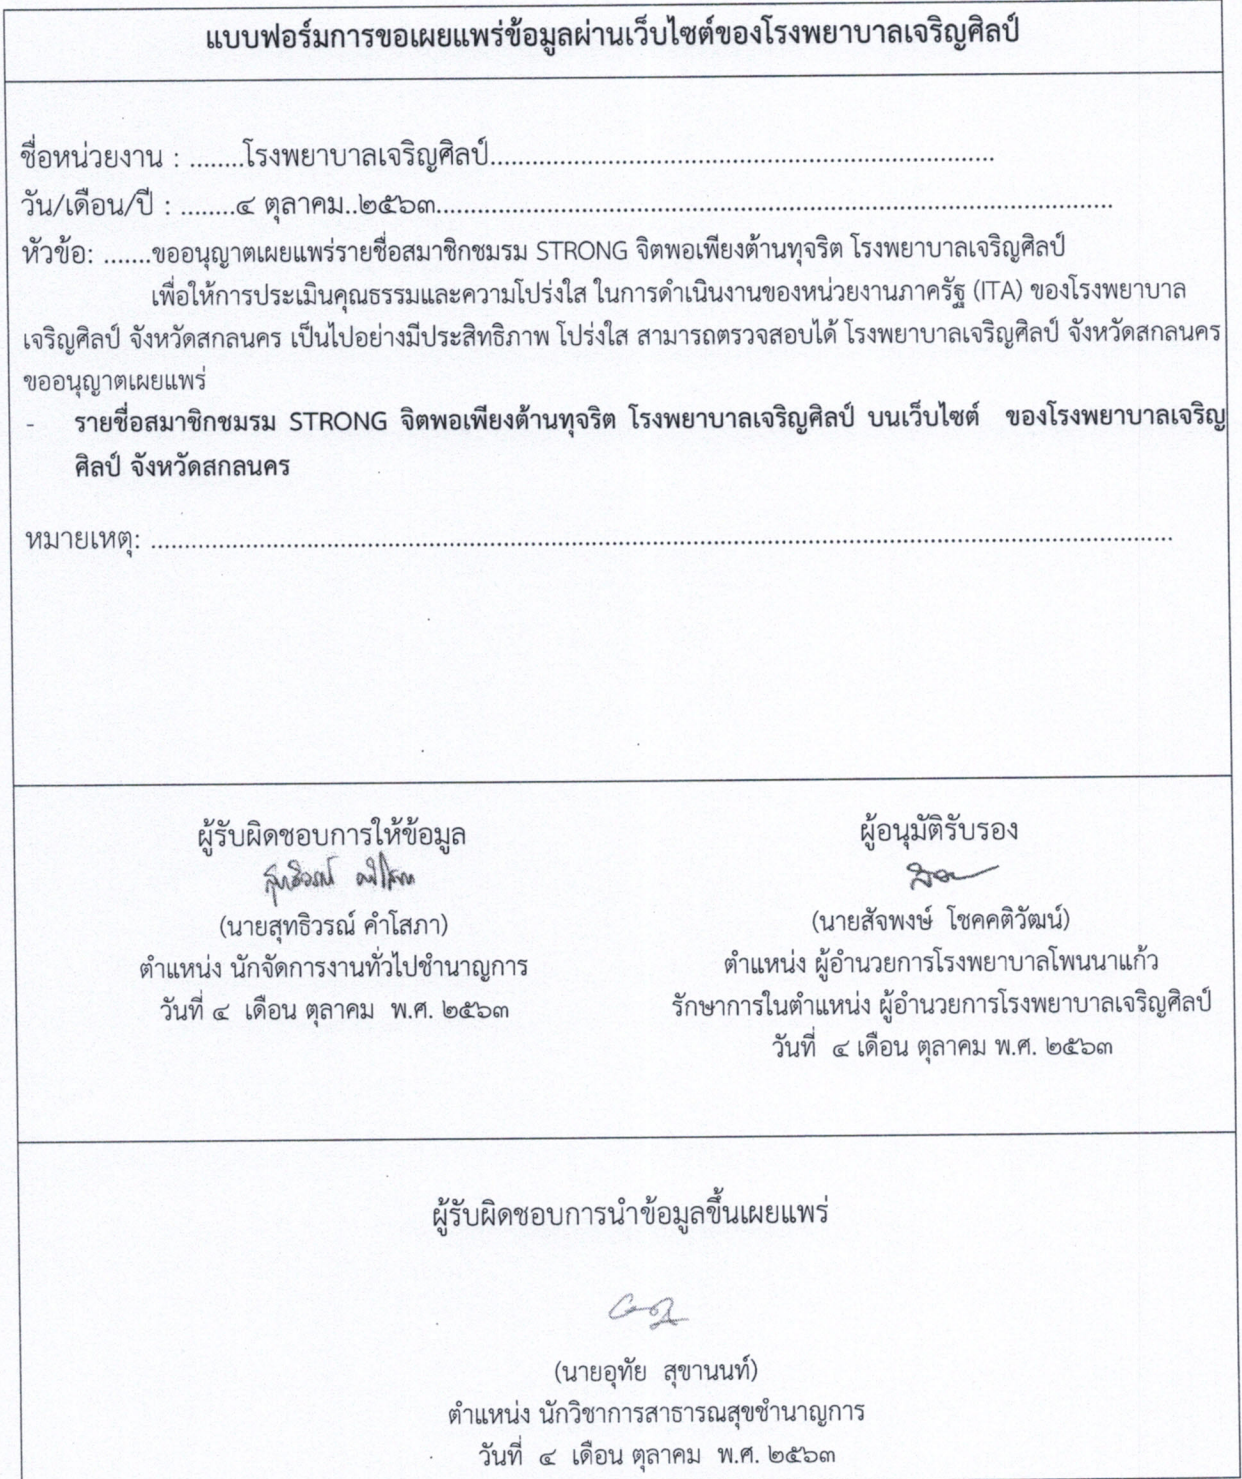 แบบฟอร์มการขอเผยแพร่ข้อมูลผ่านเว็บไซต์ของโรงพยาบาลเจริญศิลป์
ชื่อหน่วยงาน : ........โรงพยาบาลเจริญศิลป์..........................................................................
วัน/เดือน/ปี : ........๔ ตุลาคม..๒๕๖๓...................................................................................................
หัวข้อ: .......ขออนุญาตเผยแพร่รายชื่อสมาชิกชมรม STRONG จิตพอเพียงต้านทุจริต โรงพยาบาลเจริญศิลป์
เพื่อให้การประเมินคุณธรรมและความโปร่งใส ในการดำเนินงานของหน่วยงานภาครัฐ (ITA) ของโรงพยาบาล
เจริญศิลป์ จังหวัดสกลนคร เป็นไปอย่างมีประสิทธิภาพ โปร่งใส สามารถตรวจสอบได้ โรงพยาบาลเจริญศิลป์ จังหวัดสกลนคร
ขออนุญาตเผยแพร่
- รายชื่อสมาชิกชมรม STRONG จิตพอเพียงต้านทุจริต โรงพยาบาลเจริญศิลป์ บนเว็บไซต์ ของโรงพยาบาลเจริญ
ศิลป์ จังหวัดสกลนคร
หมายเหตุ: ......................................................................................................................................................
ผู้รับผิดชอบการให้ข้อมูล
(นายสุทธิวรณ์ คำโสภา)
ตำแหน่ง นักจัดการงานทั่วไปชำนาญการ
วันที่ ๔ เดือน ตุลาคม พ.ศ. ๒๕๖๓
ผู้อนุมัติรับรอง
(นายสัจพงษ์ โชคคติวัฒน์)
ตำแหน่ง ผู้อำนวยการโรงพยาบาลโพนนาแก้ว
รักษาการในตำแหน่ง ผู้อำนวยการโรงพยาบาลเจริญศิลป์
วันที่ ๔ เดือน ตุลาคม พ.ศ. ๒๕๖๓
ผู้รับผิดชอบการนำข้อมูลขึ้นเผยแพร่
(นายอุทัย สุขานนท์)
ตำแหน่ง นักวิชาการสาธารณสุขชำนาญการ
วันที่ ๔ เดือน ตุลาคม พ.ศ. ๒๕๖๓